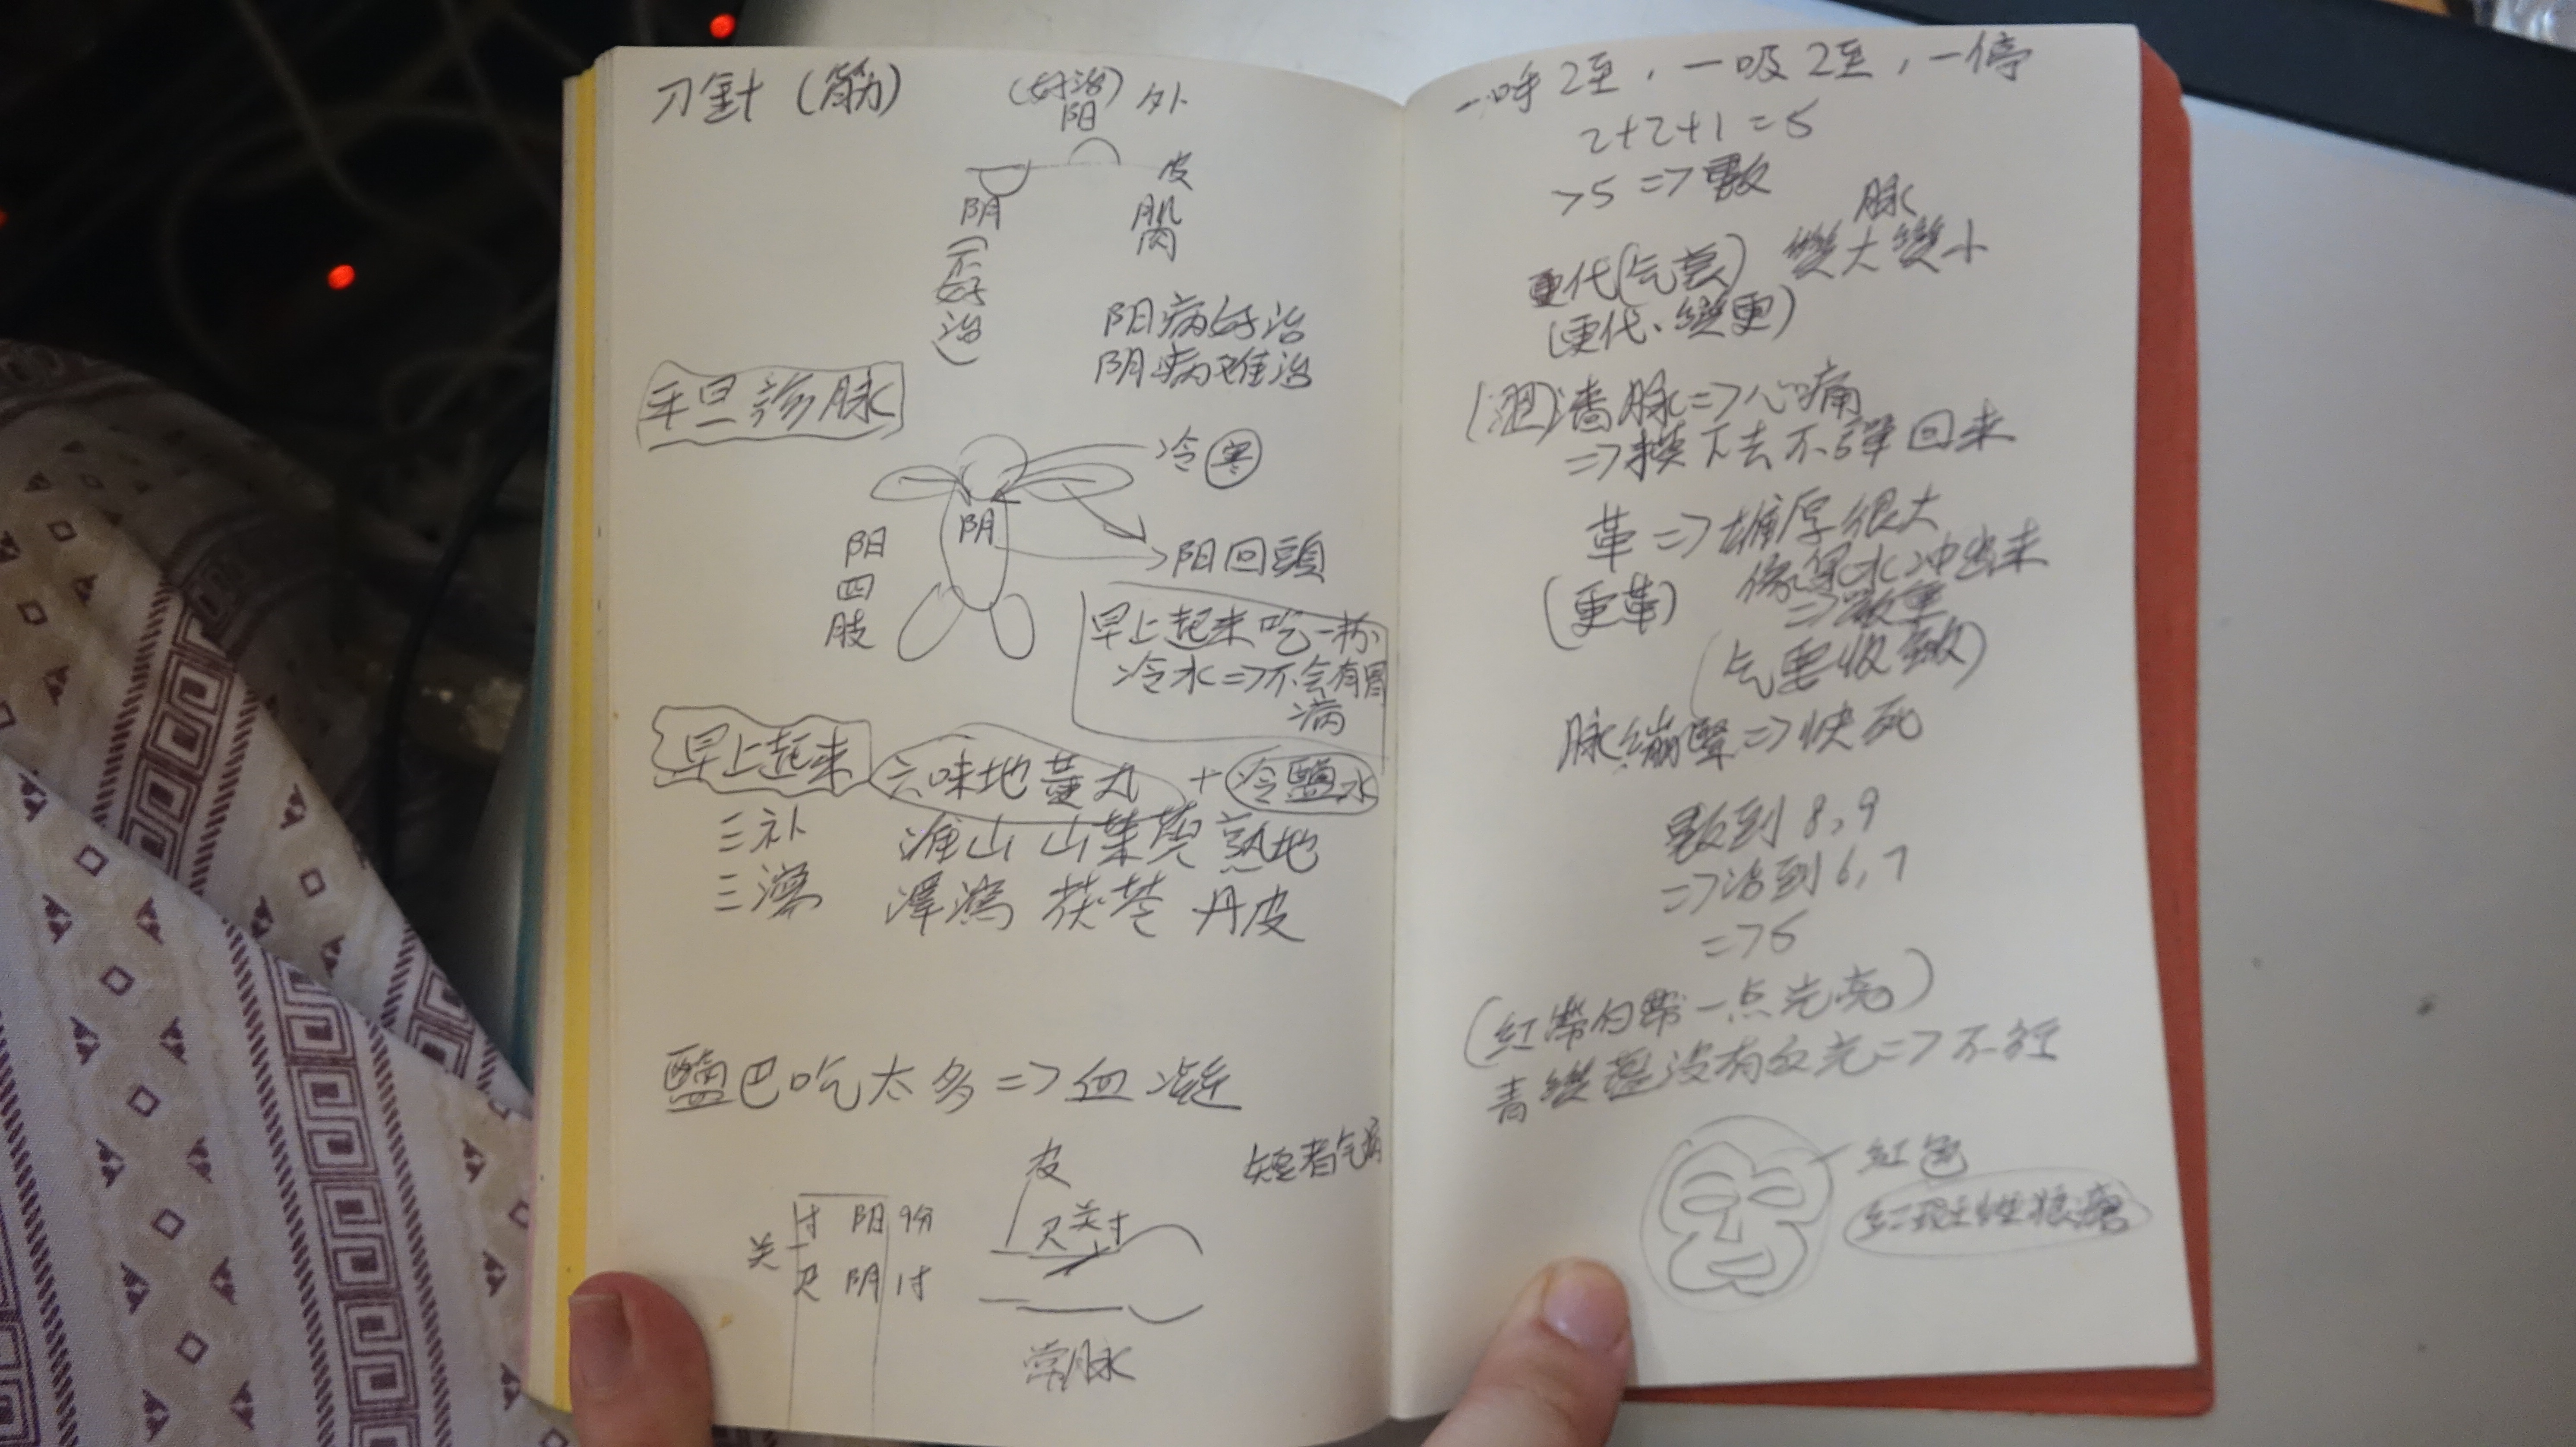 刀針（筋）
（好治）
阳 外
皮
阴
肌
肉
（不好治）
阳病好治
阴病难治
平旦診脉
冷 寒
阴
阳
四
肢
阳回頭
早上起来吃一杯
冷水=>不会有胃
病
早上起来 六味地黃丸 + 冷鹽水
三补 淮山 山茱萸 熟地
三瀉 澤瀉 茯苓 丹皮
鹽巴吃太多=>血凝
皮
短者气病
关 寸 阳 9分
尺 阴 1寸
尺关寸
常脉
一呼2至，一吸2至，一停
2+2+1=5
>5 => 數
脉
變大變小
更代(气衰)
(更代、變更)
(泗)濇脉=>心痛
=>摸下去不彈回来
革=>雄厚很大
(更革) 像泉水冲出来
(气要收斂)
脉繃緊=>快死
數到8,9
=>治到6,7
=>5
(紅帶白帶一点光亮)
青變藍没有紅光=>不行
紅色
紅斑性狼瘡